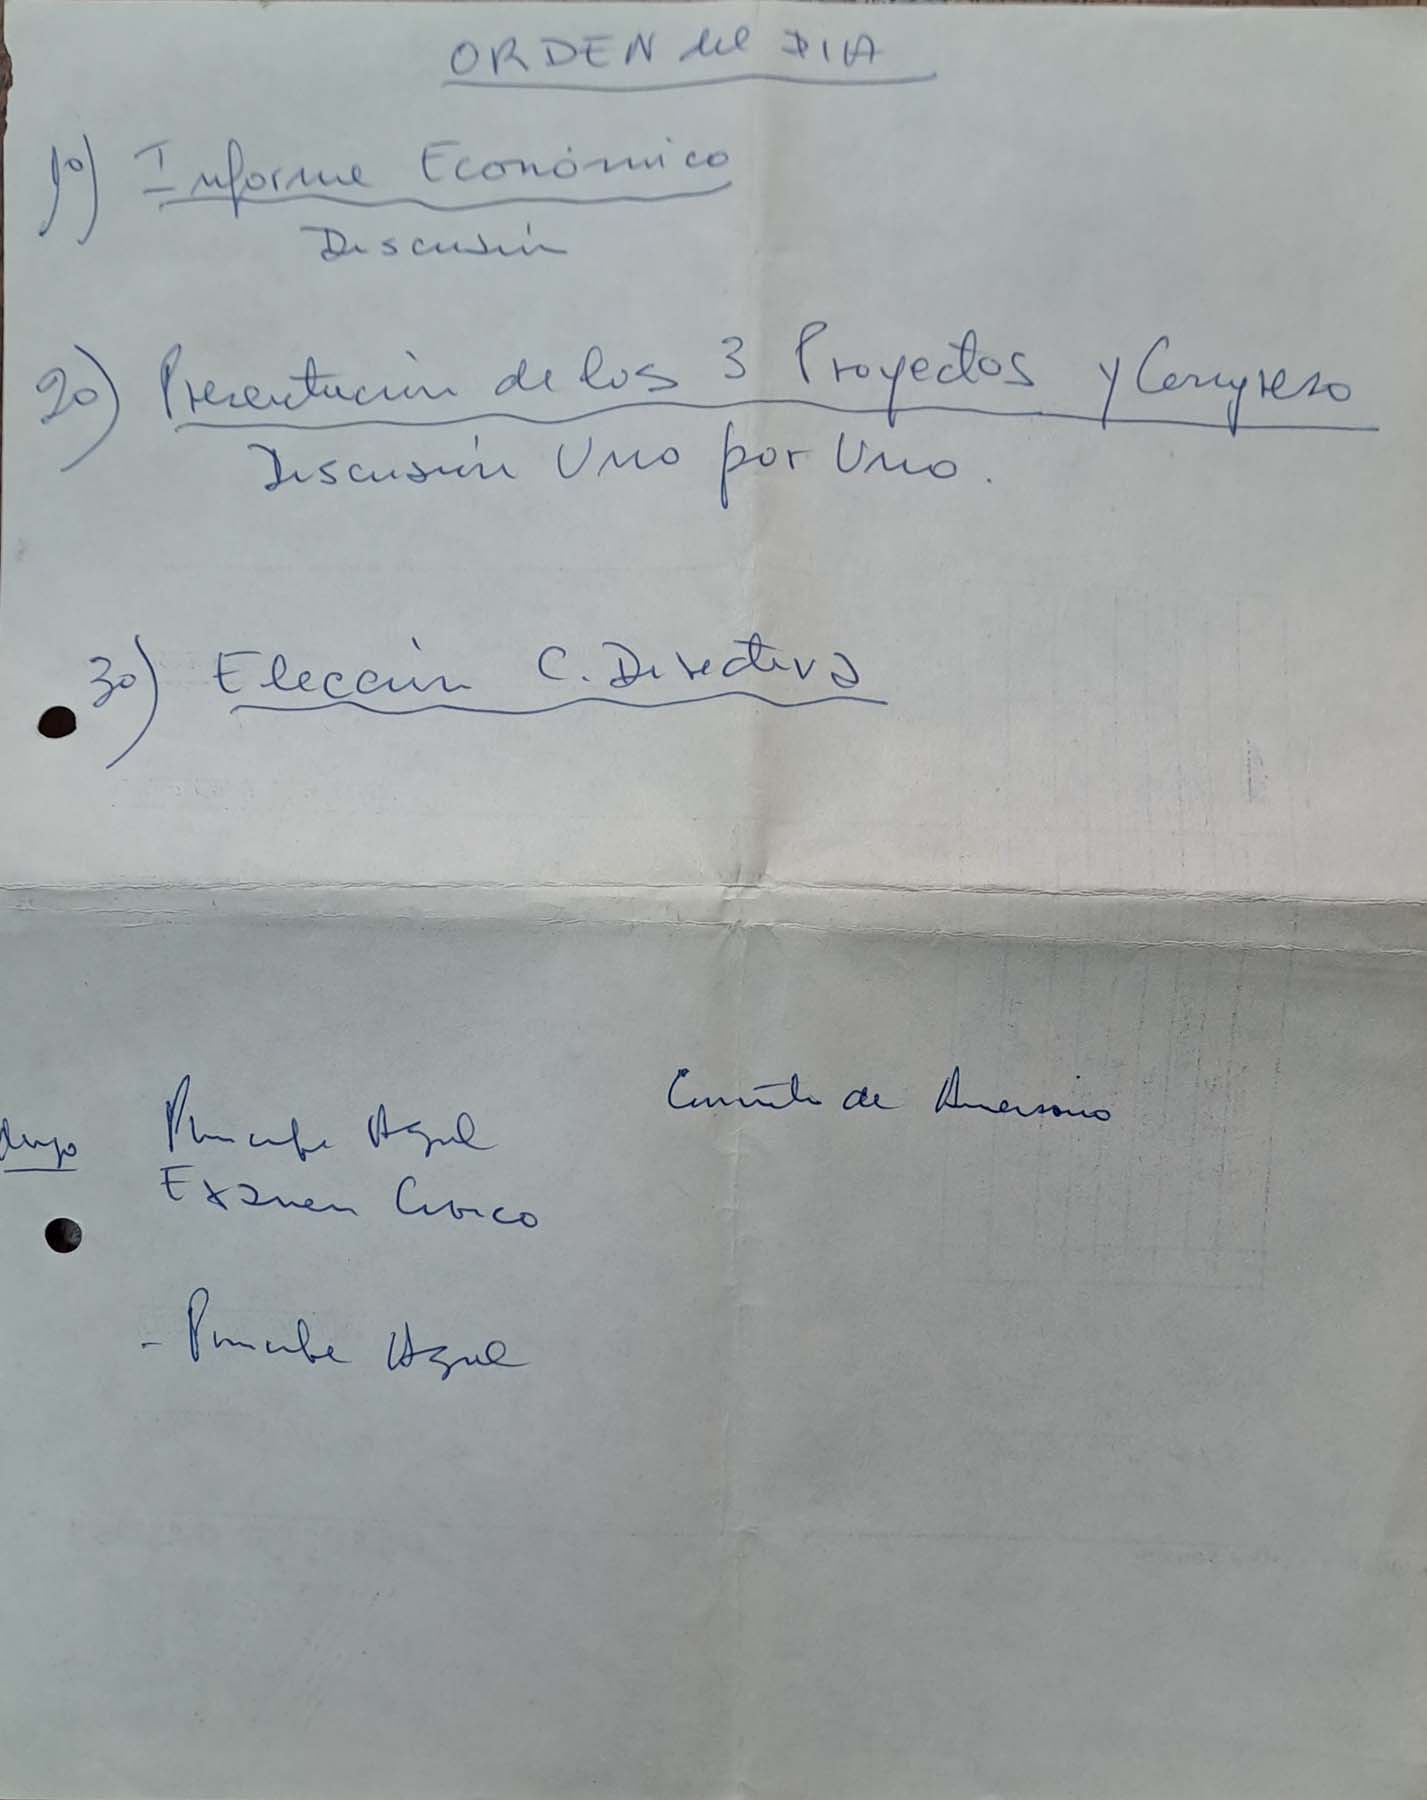 ORDEN del DIA
1º) Informe Económico
Discusión
2º) Presentación de los 3 Proyectos y Congreso
Discusión Uno por Uno.
3º) Elección C. Directiva
Principe Azul
de
Examen Civico
- Principe Azul